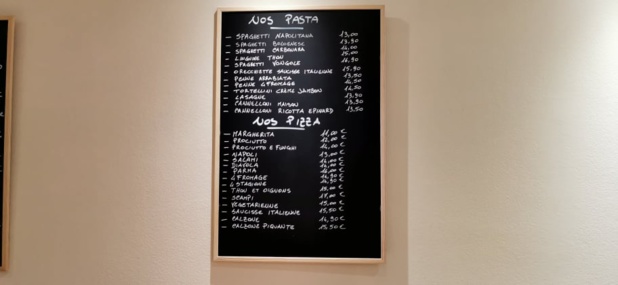 NOS PASTA
- SPAGHETTI NAPOLITANA 13,00
- SPAGHETTI 13,50
- SPAGHETTI CARBONARA 14,00
- LINGINE THON 15,00
- SPAGHETTI VONGOLE 16,50
- ORECHIETTE SAUCISSE ITALIENNE 15,50
- PENNE ARRABIATA 13,50
- PENNE 4 FROMAGE 14,50
- TORTELLINI CRÈME JAMBON 14,50
- LASAGNE 13,50
- CANNELLONI MAISON 13,50
- CANNELLONI RICOTTA EPINARD 13,50
NOS PIZZA
- MARGHERITA 11,00 €
- PROCIUTTO 12,00 €
- PROCIUTTO E FUNGHI 14,00 €
- NAPOLI 13,00 €
- SALAMI 14,00 €
- DIAVOLA 14,00 €
- PARMA 16,00 €
- 4 FROMAGE 14,50 €
- 4 STAGIONE 14,50 €
- THON ET OIGNONS 15,00 €
- SCAMPI 17,00 €
- VEGETARIENNE 15,00 €
- SAUCISSE ITALIENNE 15,50 €
- CALZONE 14,50 €
- CALZONE PIQUANTE 15,50 €